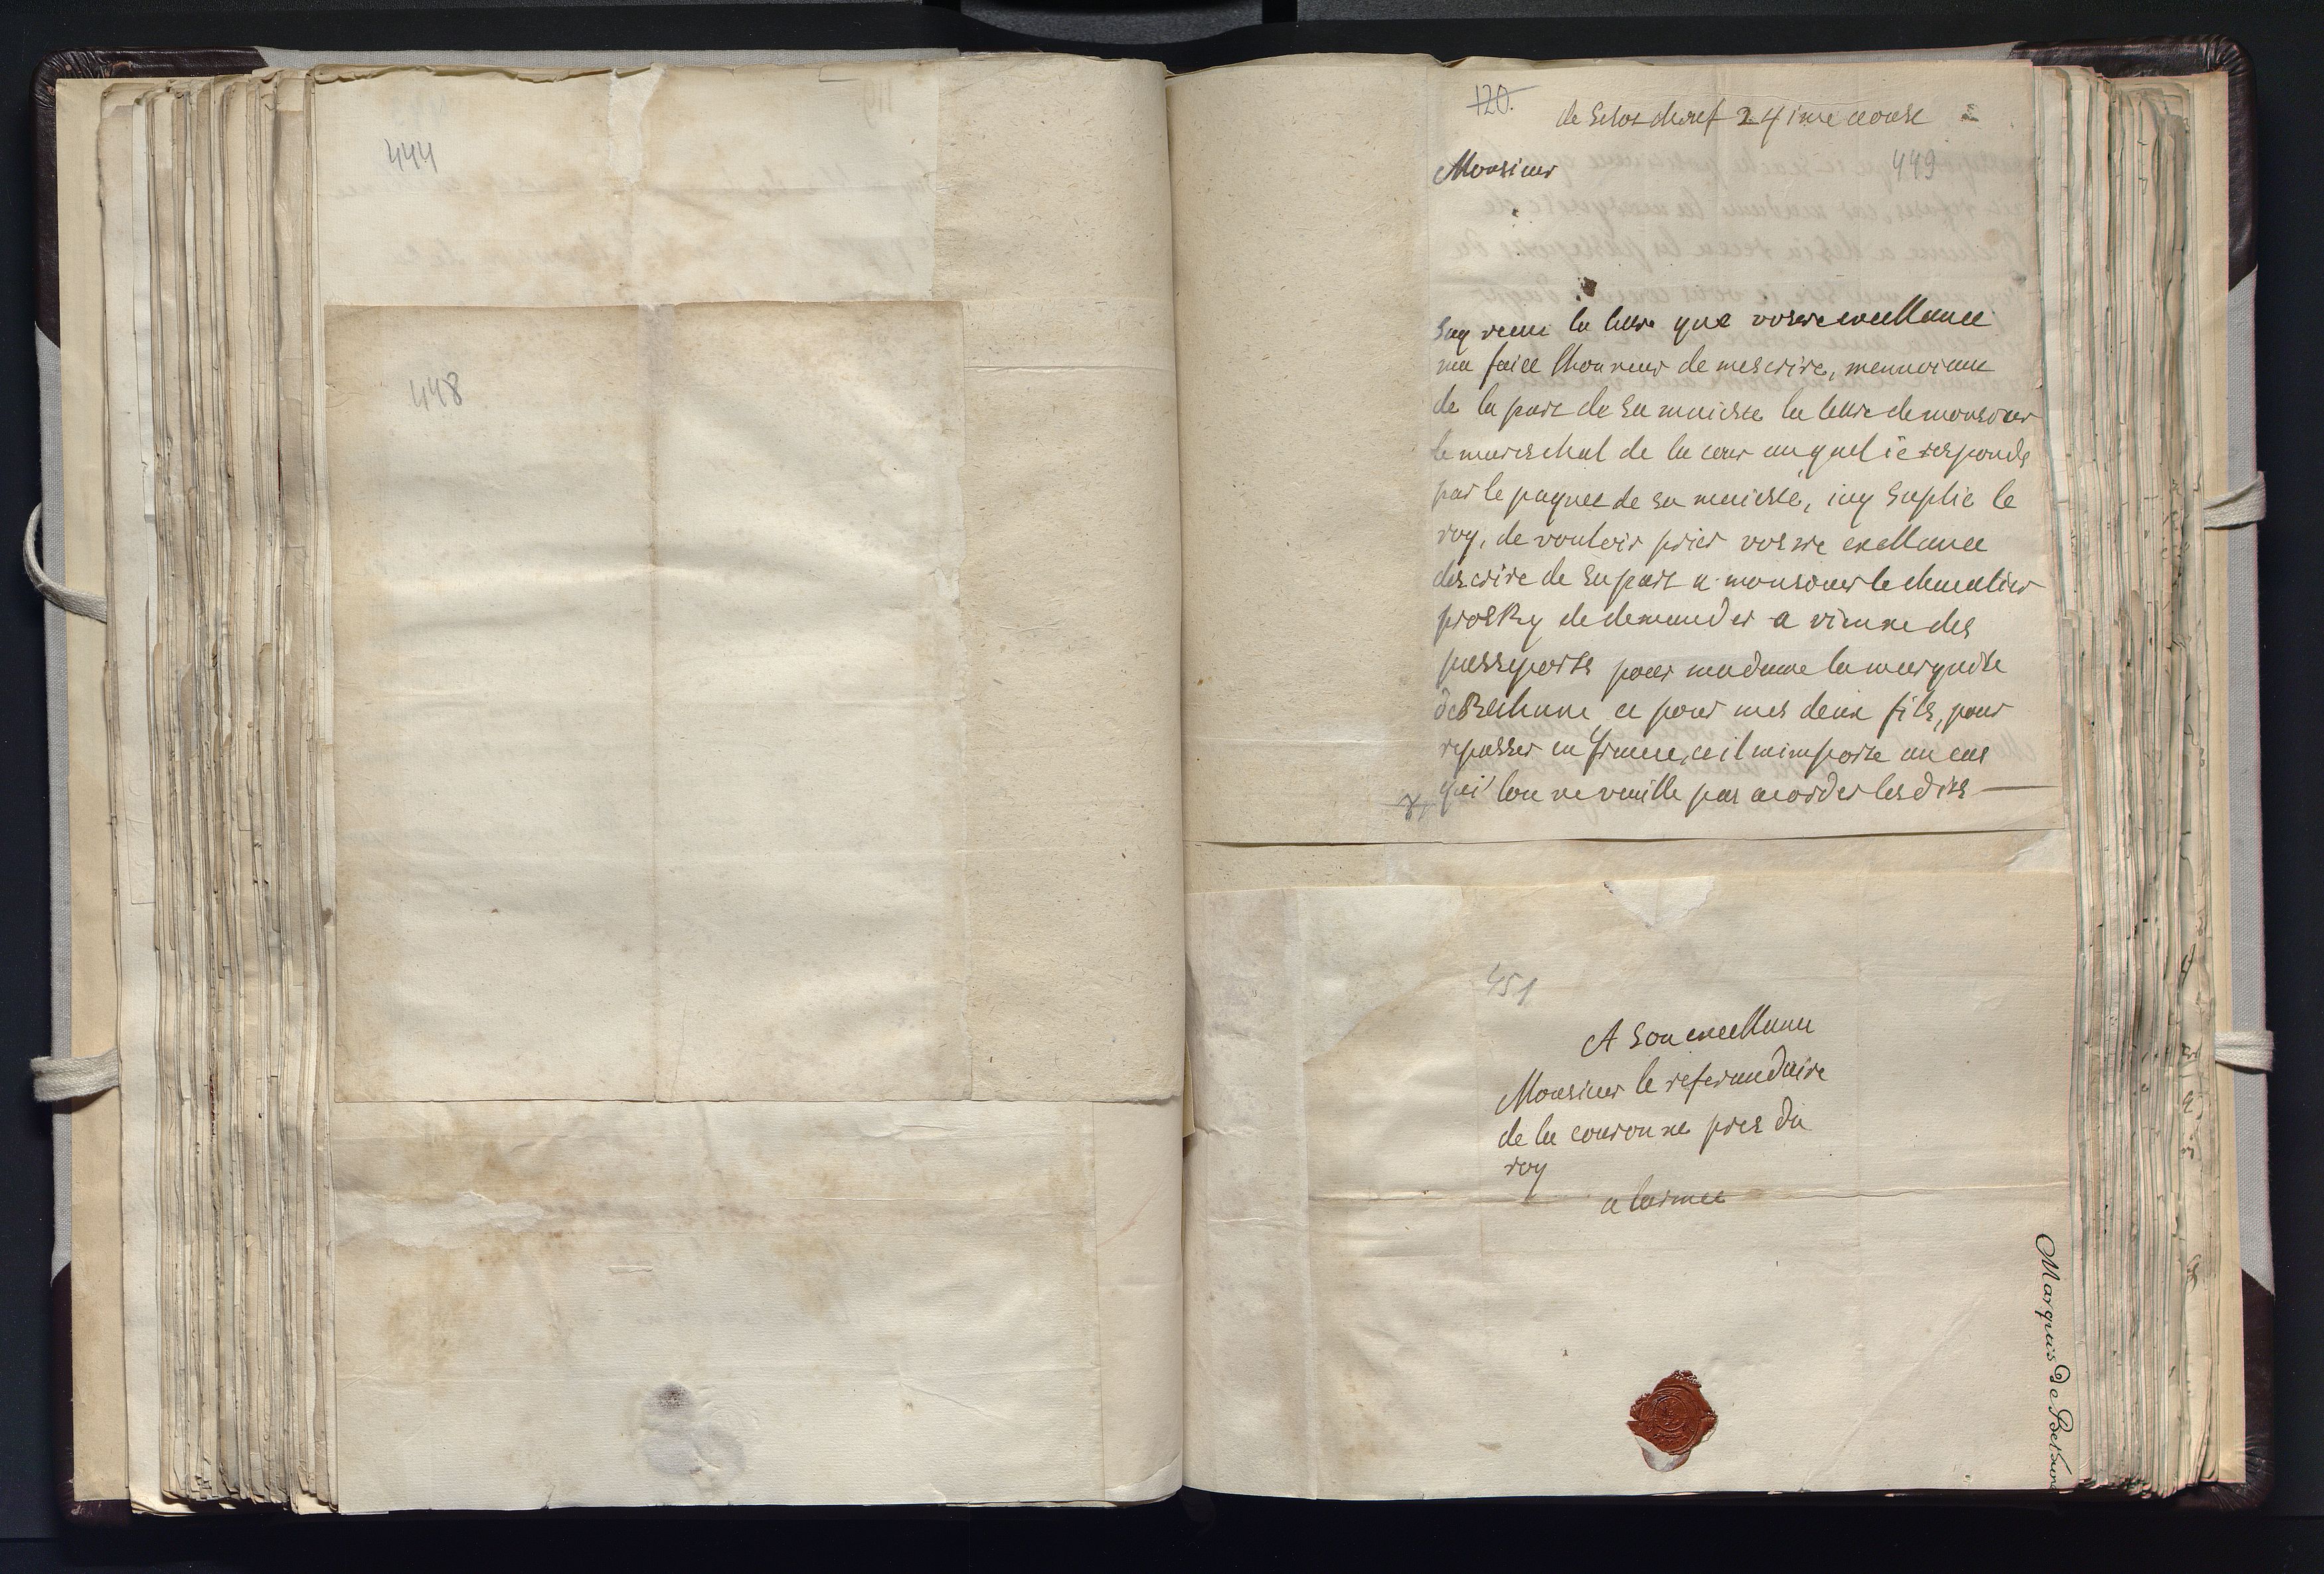 444
448
120.
de 24ime aoust
Monsieur
449
Jay receu la lettre que vostre excellance
ma faict lhonneur de mescrire, menvoiant
de la part de sa maieste la lettre de monsieur
le mareschal de la cour auquel ie responds
par le paquet de sa maieste, iay suplie le
roy, de vouloir prier vostre exellance
descrire de sa part a monsieur le chevalier
prosky de demander a vienne des
passeports pour madame la marquise
de Bethune et pour mes deux fils, pour
repasser en france, et il mimporte en cas
que lon ne veuille pas acorder lesdits
451
A Son excellance
Monsieur le referandaire
de la couronne pres du
roy
a larmee
Marquis de Bethune